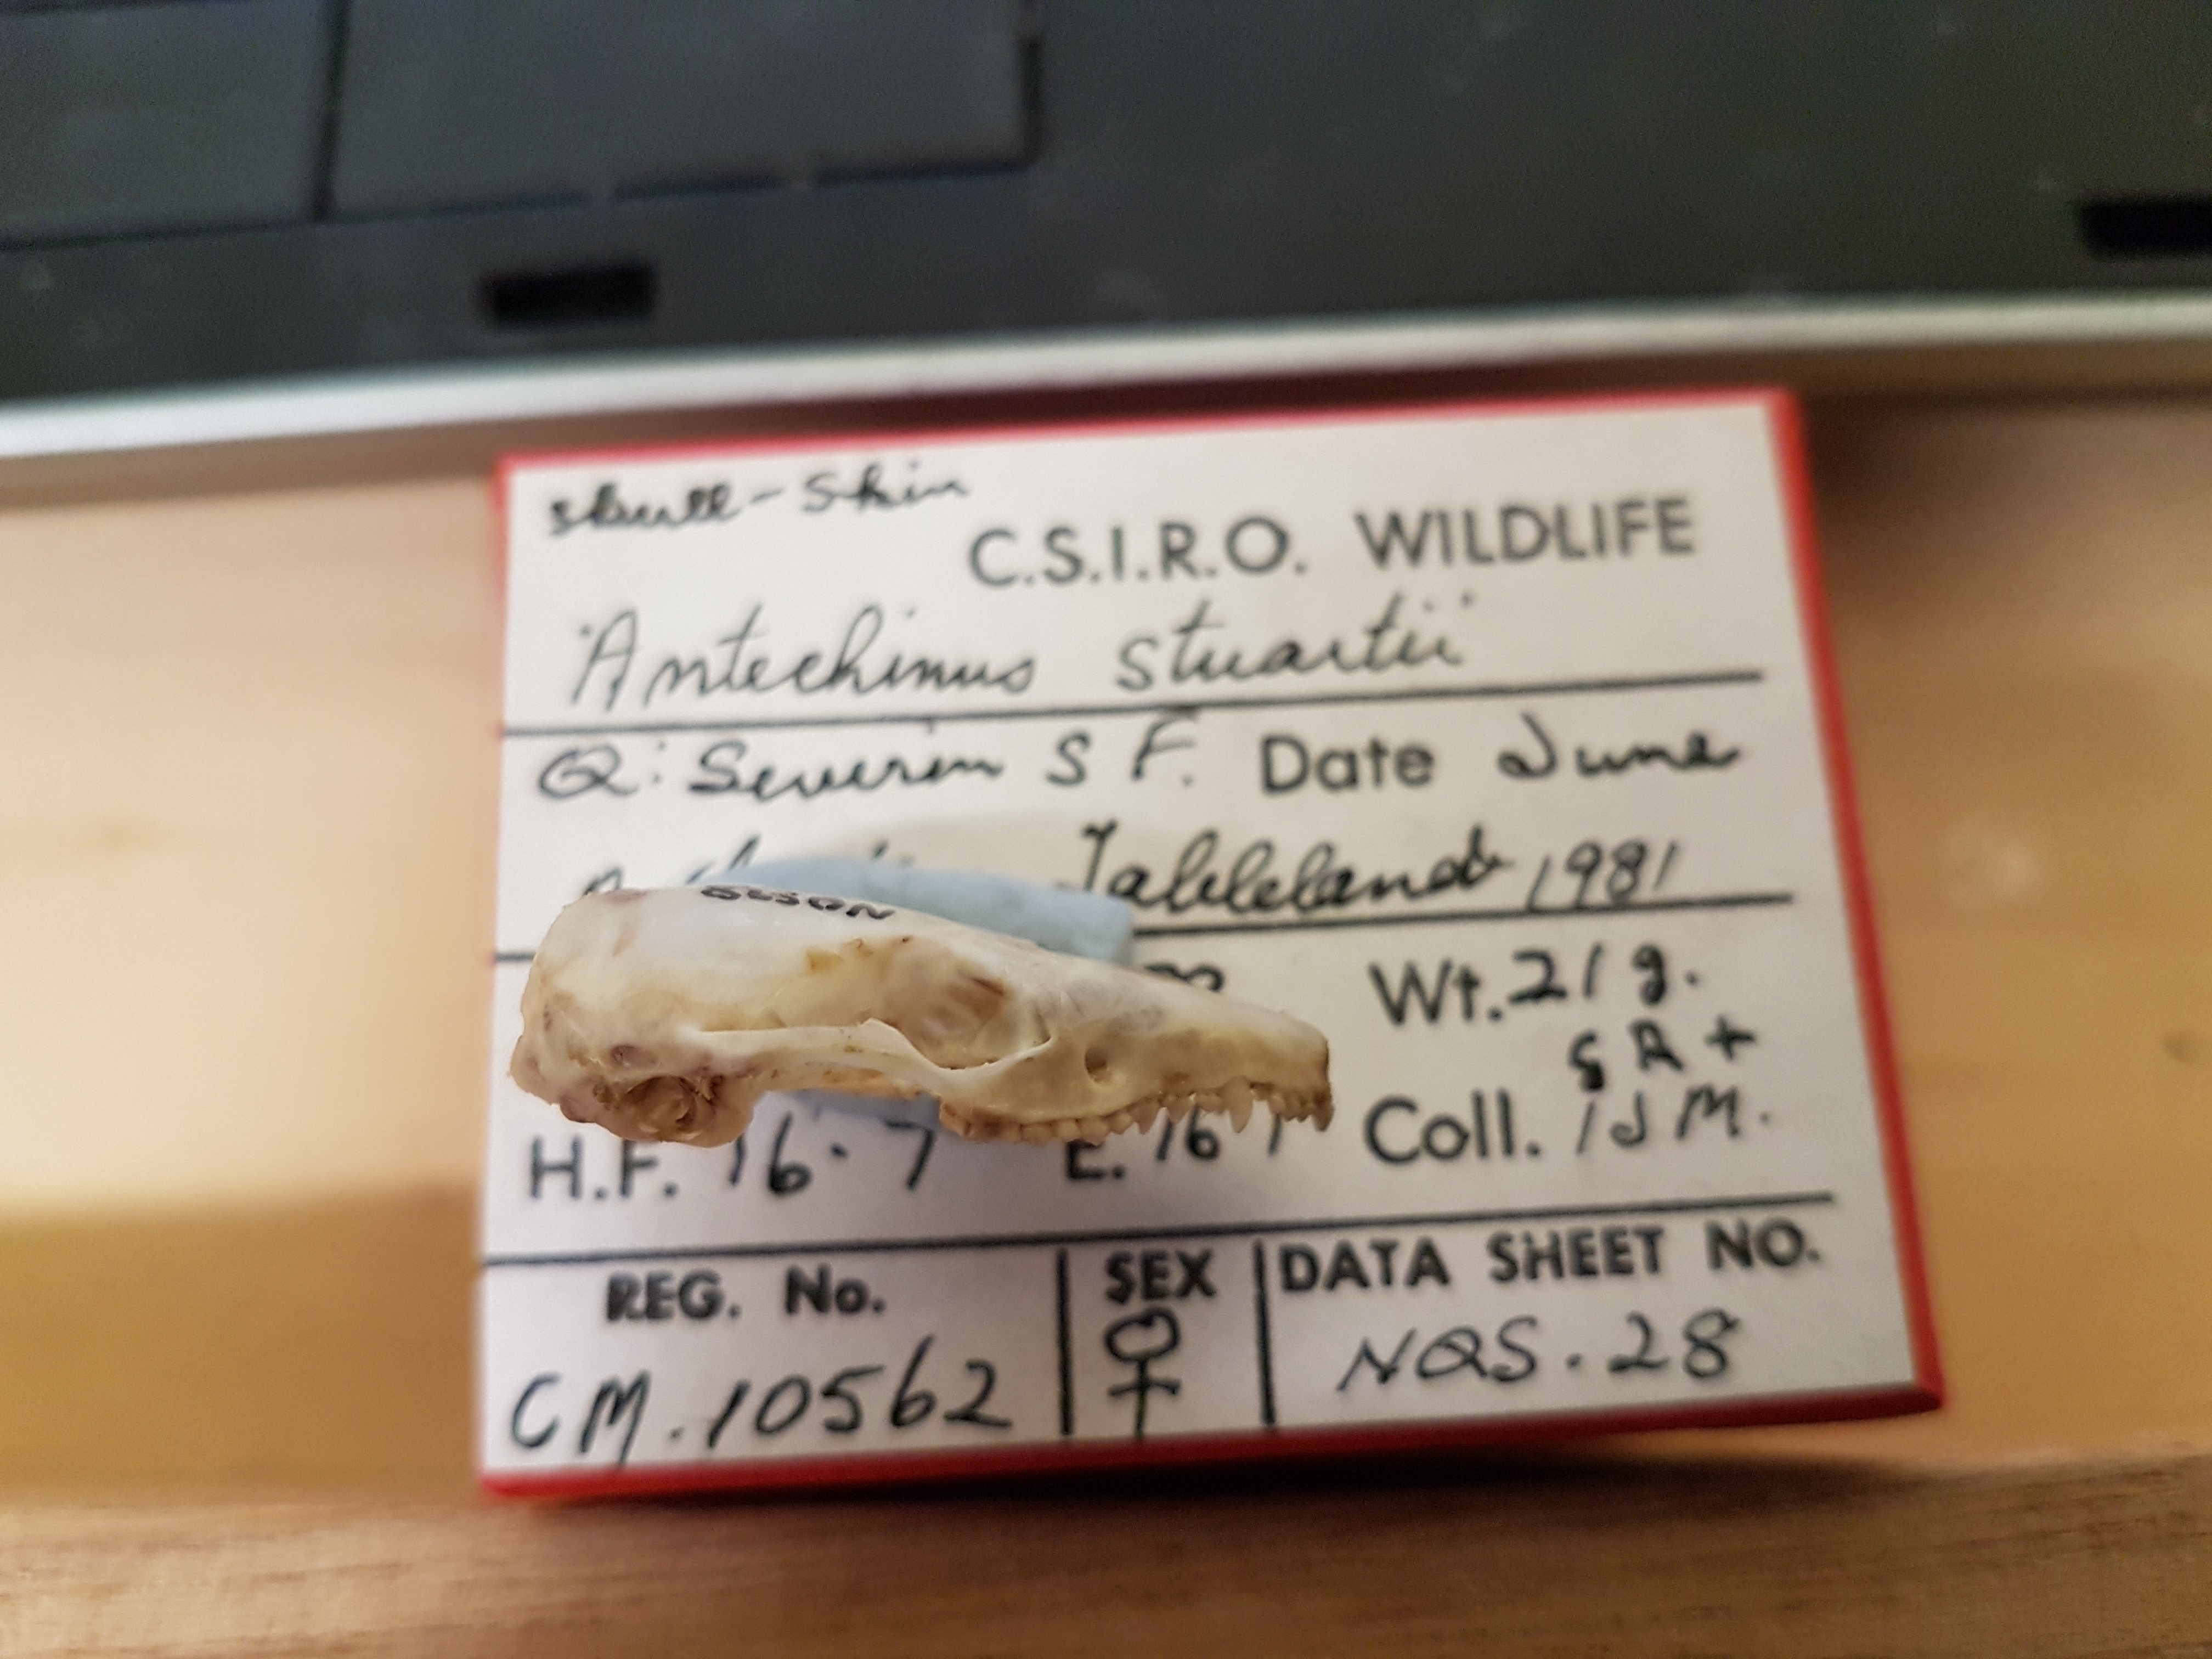 skull - Skin
C.S.I.R.O. WILDLIFE
'Antechinus stuartii'
Q: Severin S F. Date June
Tableland 1981
Wt. 21 g.
H.F. 16.7 E. 16.1 Coll. IJM.
S R +
REG. No. SEX DATA SHEET NO.
CM. 10562 ♀ NQS. 28